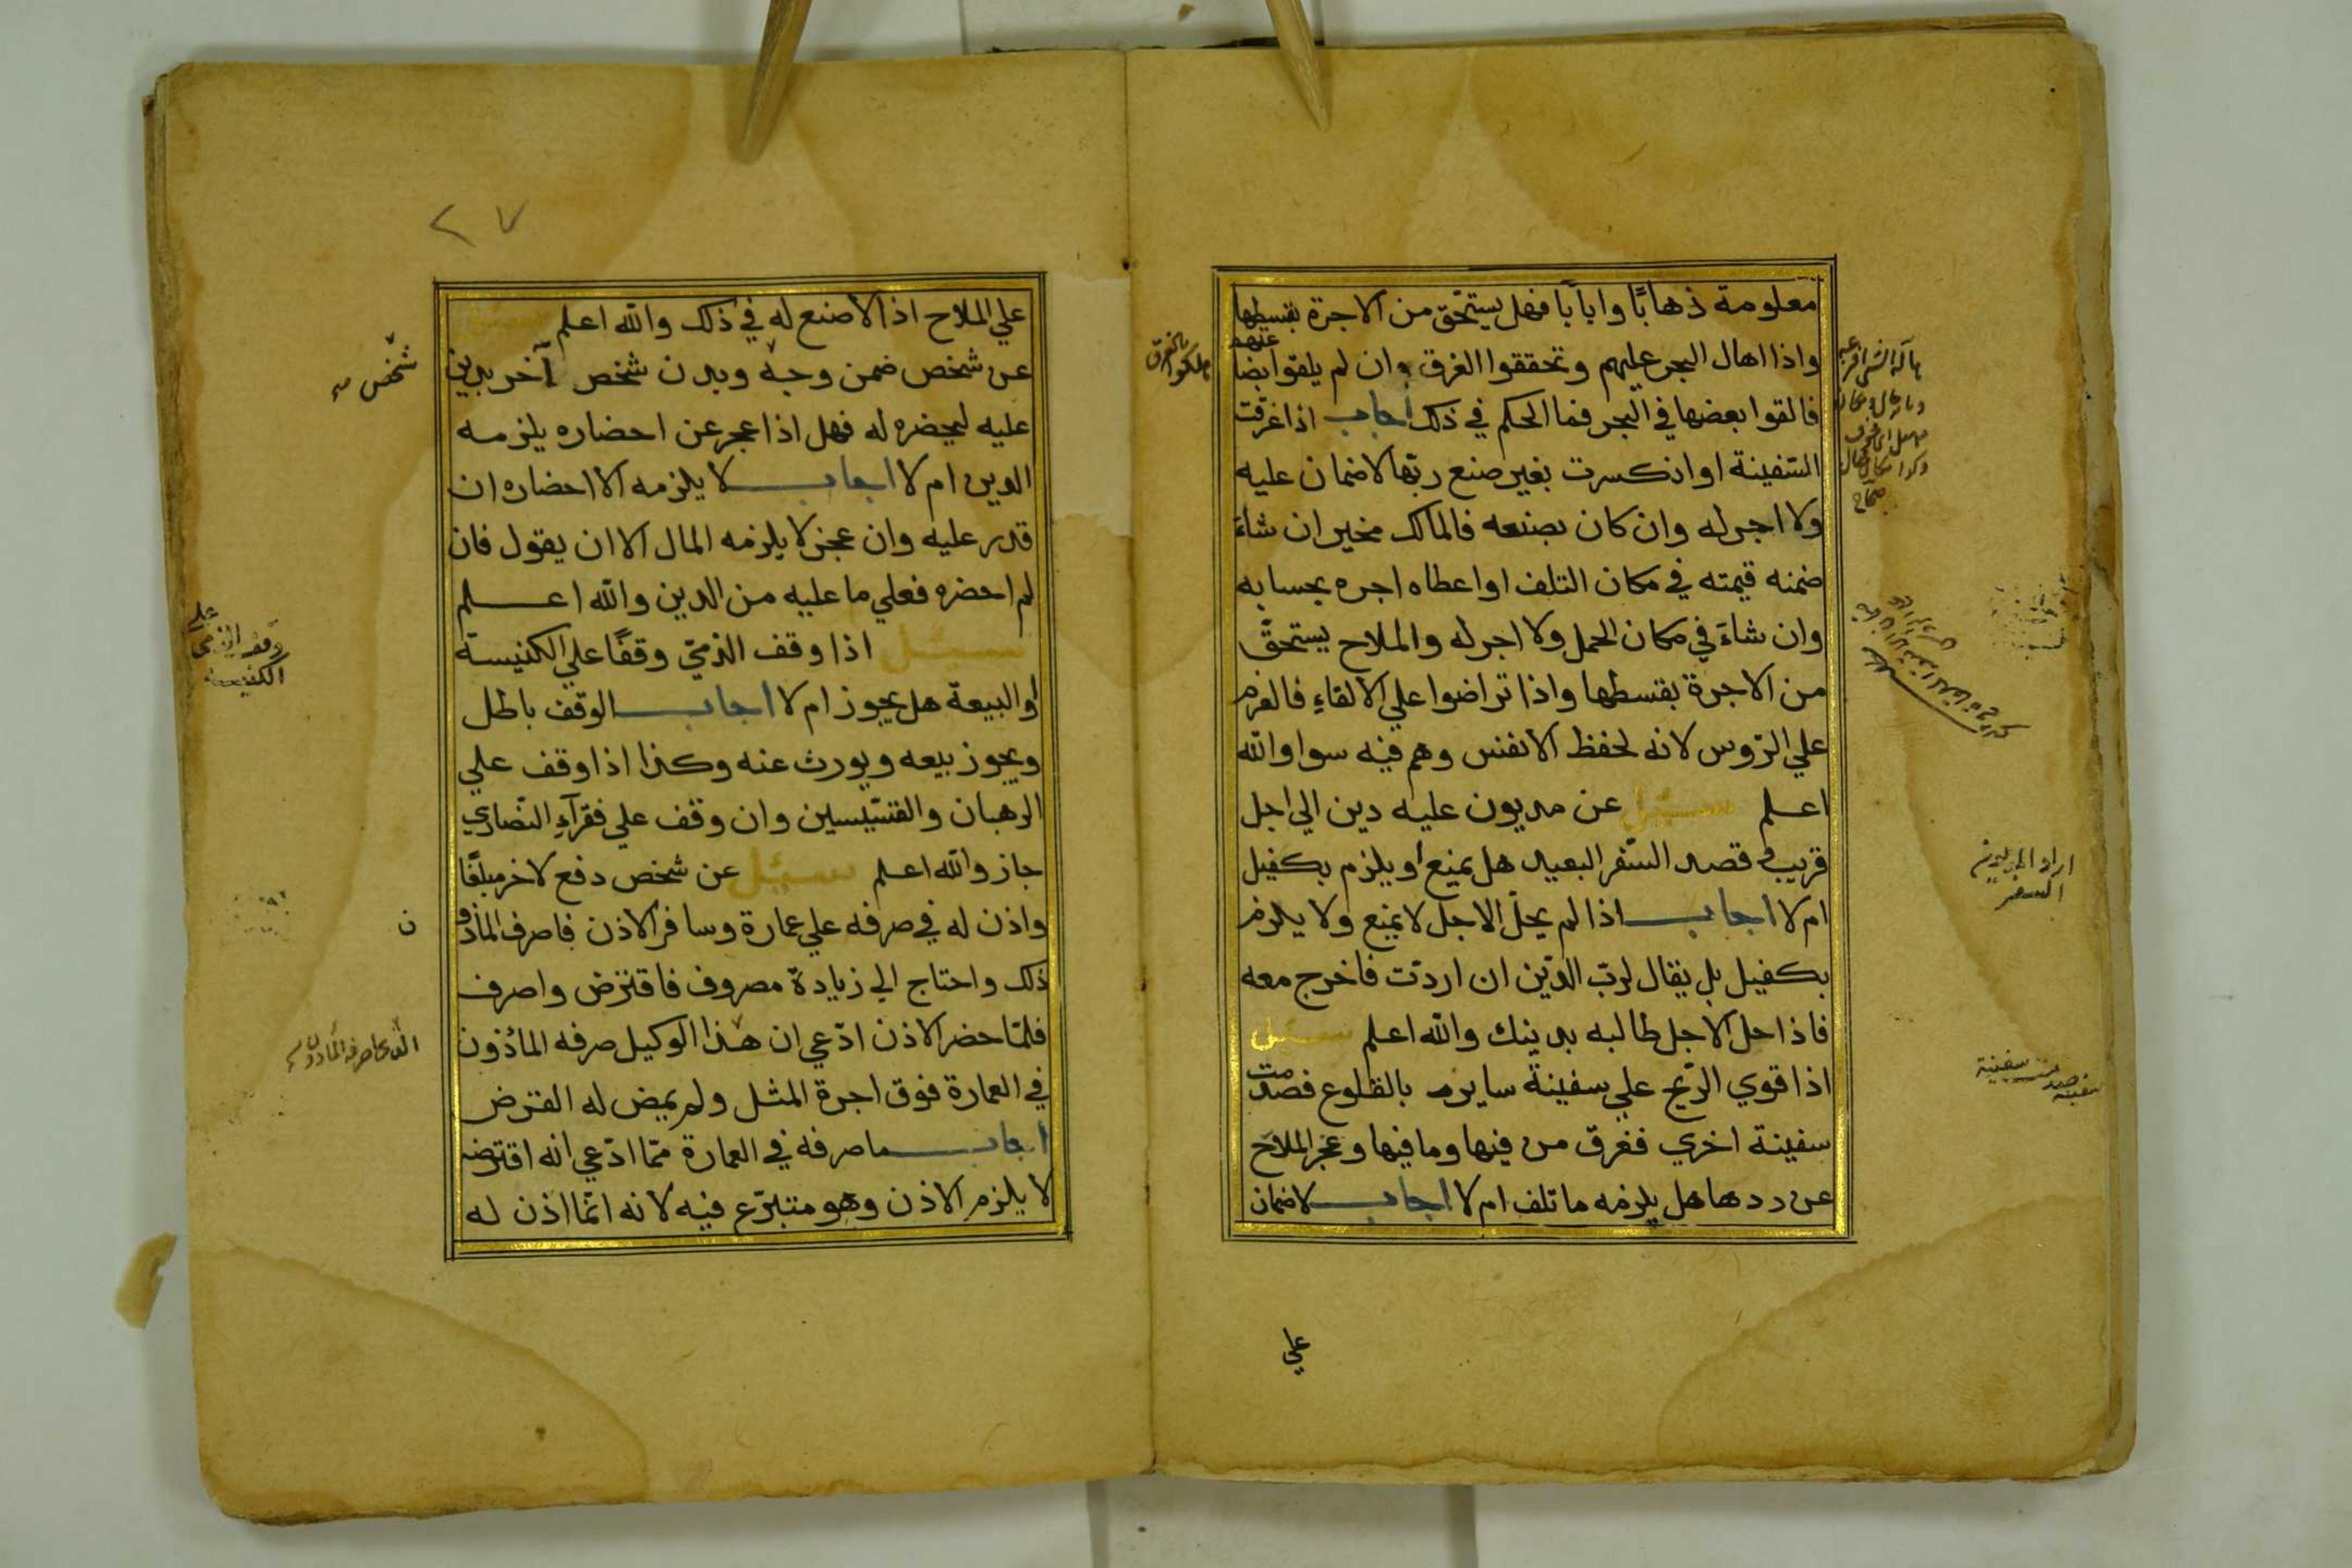 معلومة ذهابًا وايابًا فهل يستحق من الاجرة بقسطها
واذا اهال البحر عليهم وتحققوا الغرق وان لم يلقوا بضا
عتهم
فالقوا بعضها في البحر فما الحكم في ذلك اجاب اذا غرقت
السفينة او انكسرت بغير صنع ربها لا ضمان عليه
ولا اجر له وان كان بصنعه فالمالك مخير ان شاء
ضمنه قيمته في مكان التلف او اعطاه اجره بحسابه
وان شاء في مكان الحمل ولا اجر له والملاح يستحق
من الاجرة بقسطها واذا تراضوا علي الالقاءِ فالغرم
علي الرّوس لانه لحفظ الانفس وهم فيه سوا والله
اعلم سئل عن مديون عليه دين الي اجل
قريب قصد السّفر البعيد هل يمنع او يلزم بكفيل
ام لا اجاب اذا لم يحلّ الاجل لا يمنع ولا يلزم
بكفيل بل يقال لربّ الدّين ان اردت فاخرج معه
فاذا حل الاجل طالبه بدينك والله اعلم سئل
اذا قوي الرّيح علي سفينة سايره بالقلوع فصدمت
سفينة اخري فغرق من فيها وما فيها وعجز الملاح
عن ردها هل يلزمه ما تلف ام لا اجاب لا ضمان
علي
هلكوا بالغرق
اراد المديون
السفر
سفينه صدمت سفينة
٢٧
علي الملاح اذ لا صنع له في ذلك والله اعلم سئل
عن شخص ضمن وجه وبدن شخص آخر بدين
عليه ليحضره له فهل اذا عجز عن احضاره يلزمه
الدين ام لا اجاب لا يلزمه الا احضاره ان
قدر عليه وان عجز لا يلزمه المال الا ان يقول فان
لم احضره فعلي ما عليه من الدين والله اعلم
سئل اذا وقف الذميّ وقفًا علي الكنيسة
او البيعة هل يجوز ام لا اجاب الوقف باطل
ويجوز بيعه ويورث عنه وكذا اذا وقف علي
الرهبان والقسّيسين وان وقف علي فقرآءِ النّصاري
جاز والله اعلم سئل عن شخص دفع لاخر مبلغًا
واذن له في صرفه علي عمارة وسافر الاذن فاصرف الماذو
ن
ذلك واحتاج الي زيادة مصروف فاقترض واصرف
فلمّا حضر الاذن ادّعي ان هذا الوكيل صرفه المأذون
في العمارة فوق اجرة المثل ولم يمض له القرض
اجاب ما صرفه في العمارة ممّا ادّعي انه اقترضه
لا يلزم الاذن وهو متبرّع فيه لانه انّما اذن له
شخص
وقف الذمي علي
الكنيسة